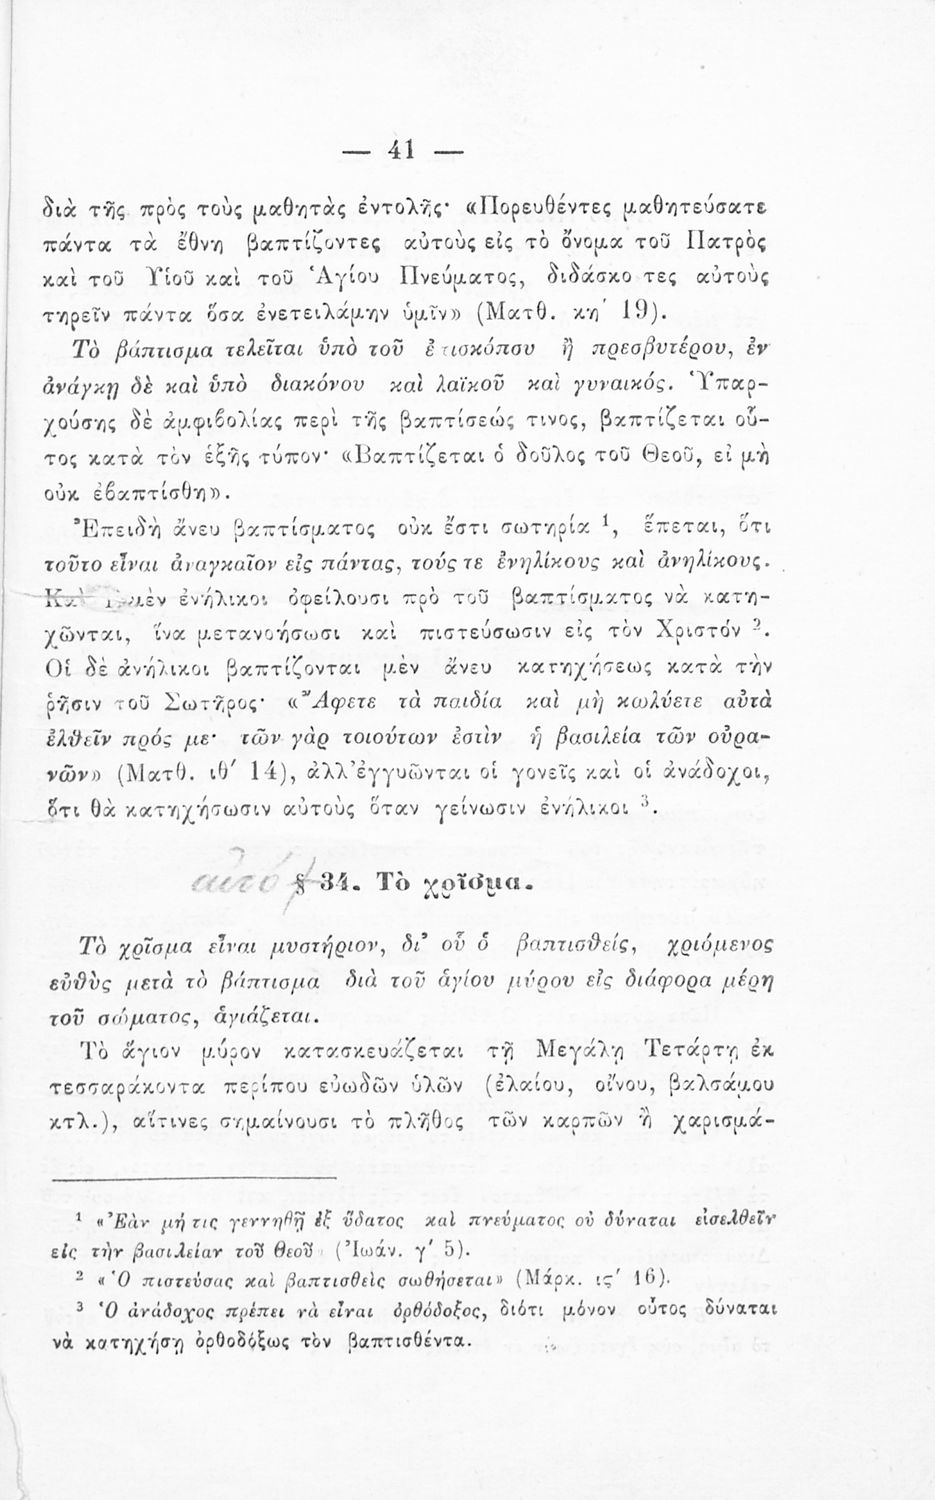 — 41 —
διὰ τῆς πρὸς τοὺς μαθητὰς ἐντολῆς· «Πορευθέντες μαθητεύσατε
πάντα τὰ ἔθνη βαπτίζοντες αὐτοὺς εἰς τὸ ὄνομα τοῦ Πατρὸς
καὶ τοῦ Υἱοῦ καὶ τοῦ Ἁγίου Πνεύματος, διδάσκο τες αὐτοὺς
τηρεῖν πάντα ὅσα ἐνετειλάμην ὑμῖν» (Ματθ. κη΄ 19).
Τὸ βάπτισμα τελεῖται ὑπὸ τοῦ ἐπισκόπου ἢ πρεσβυτέρου, ἐν
ἀνάγκῃ δὲ καὶ ὑπὸ διακόνου καὶ λαϊκοῦ καὶ γυναικός. Ὑπαρ-
χούσης δὲ ἀμφιβολίας περὶ τῆς βαπτίσεώς τινος, βαπτίζεται οὗ-
τος κατὰ τὸν ἑξῆς τύπον· «Βαπτίζεται ὁ δοῦλος τοῦ Θεοῦ, εἰ μὴ
οὐκ ἐβαπτίσθη».
Ἐπειδὴ ἄνευ βαπτίσματος οὐκ ἔστι σωτηρία ¹, ἕπεται, ὅτι
τοῦτο εἶναι ἀναγκαῖον εἰς πάντας, τούς τε ἐνηλίκους καὶ ἀνηλίκους.
Καὶ μὲν ἐνήλικοι ὀφείλουσι πρὸ τοῦ βαπτίσματος νὰ κατη-
χῶνται, ἵνα μετανοήσωσι καὶ πιστεύσωσιν εἰς τὸν Χριστόν ².
Οἱ δὲ ἀνήλικοι βαπτίζονται μὲν ἄνευ κατηχήσεως κατὰ τὴν
ῥῆσιν τοῦ Σωτῆρος· «Ἄφετε τὰ παιδία καὶ μὴ κωλύετε αὐτὰ
ἐλθεῖν πρός με· τῶν γὰρ τοιούτων ἐστὶν ἡ βασιλεία τῶν οὐρα-
νῶν» (Ματθ. ιθ΄ 14), ἀλλ᾽ἐγγυῶνται οἱ γονεῖς καὶ οἱ ἀνάδοχοι,
ὅτι θὰ κατηχήσωσιν αὐτοὺς ὅταν γείνωσιν ἐνήλικοι ³.
αὐτό § 34. Τὸ χρῖσμα.
Τὸ χρῖσμα εἶναι μυστήριον, δι᾽ οὗ ὁ βαπτισθείς, χριόμενος
εὐθὺς μετὰ τὸ βάπτισμα διὰ τοῦ ἁγίου μύρου εἰς διάφορα μέρη
τοῦ σώματος, ἁγιάζεται.
Τὸ ἅγιον μύρον κατασκευάζεται τῇ Μεγάλῃ Τετάρτῃ ἐκ
τεσσαράκοντα περίπου εὐωδῶν ὑλῶν (ἐλαίου, οἴνου, βαλσάμου
κτλ.), αἵτινες σημαίνουσι τὸ πλῆθος τῶν καρπῶν ἢ χαρισμά-
¹ «Ἐὰν μή τις γεννηθῇ ἐξ ὕδατος καὶ πνεύματος οὐ δύναται εἰσελθεῖν
εἰς τὴν βασιλείαν τοῦ Θεοῦ (Ἰωάν. γ΄ 5).
² «Ὁ πιστεύσας καὶ βαπτισθεὶς σωθήσεται» (Μάρκ. ις΄ 16).
³ Ὁ ἀνάδοχος πρέπει νὰ εἶναι ὀρθόδοξος, διότι μόνον οὗτος δύναται
νὰ κατηχήσῃ ὀρθοδόξως τὸν βαπτισθέντα.